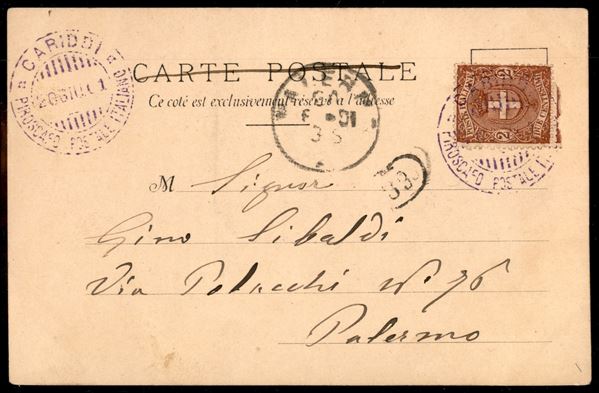 CARIDDI
20 GIU. 01
PIROSCAFO POSTALE ITALIANO
CARTE POSTALE
Ce coté est exclusivement réservé à l'adresse
01
3 S
PIROSCAFO POSTALE
M Signor
Gino Sibaldi
Via Polacchi Nº 76
Palermo